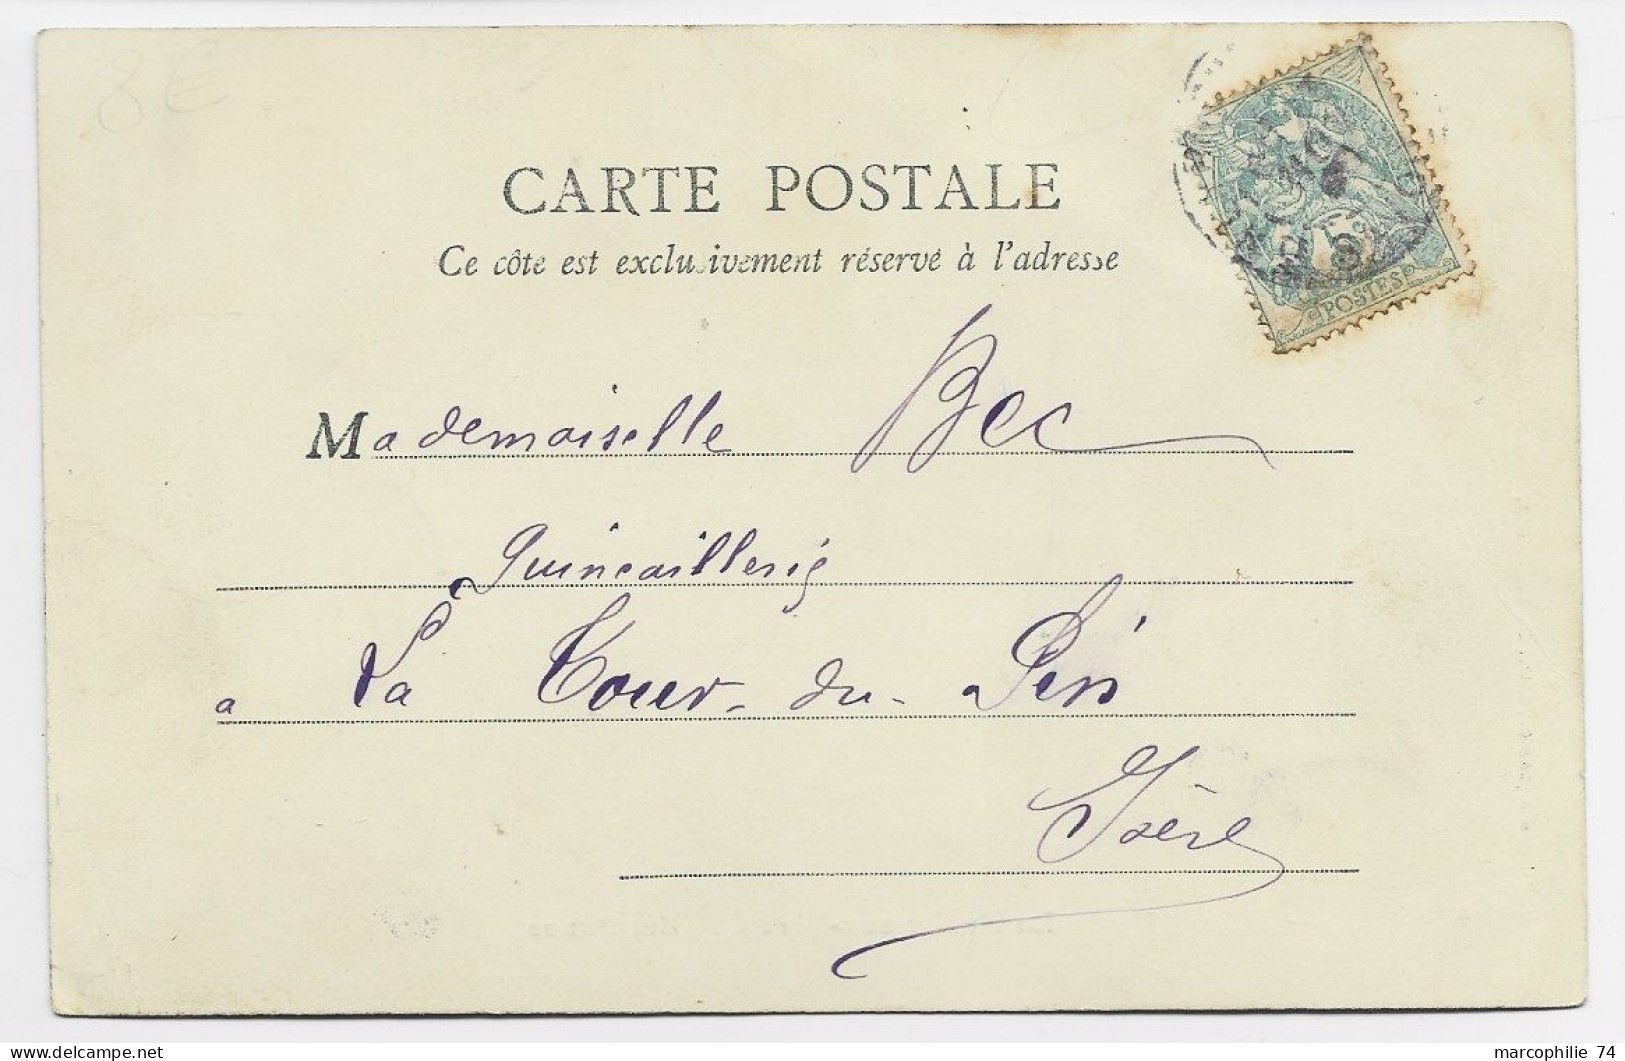 8E
CARTE POSTALE
Ce côte est exclusivement réservé à l'adresse
5
POSTES
Mademoiselle Bec
Quincaillerie
a La Tour-du-Pin
Isère
marcophilie 74